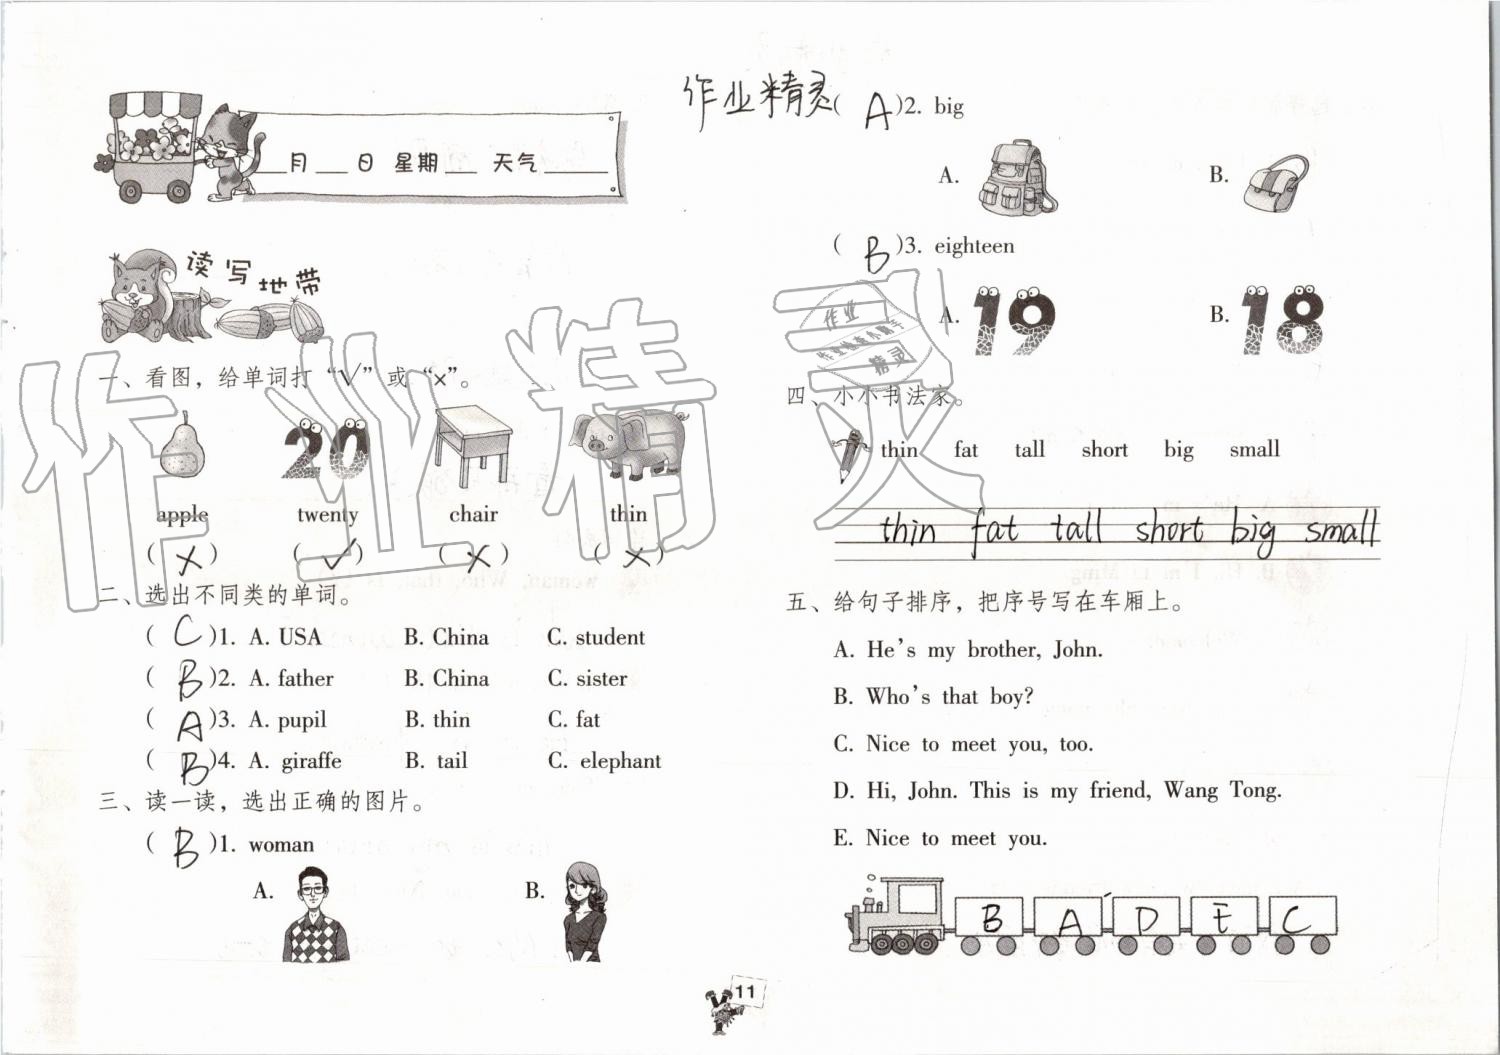 ___月___日 星期___ 天气______
读写地带
一、看图，给单词打“√”或“×”。
20
apple twenty chair thin
( × ) ( √ ) ( × ) ( × )
二、选出不同类的单词。
( C )1. A. USA B. China C. student
( B )2. A. father B. China C. sister
( A )3. A. pupil B. thin C. fat
( B )4. A. giraffe B. tail C. elephant
三、读一读，选出正确的图片。
( B )1. woman
A. B.
作业精灵
( A )2. big
A. B.
( B )3. eighteen
A. 19 B. 18
四、小小书法家。
thin fat tall short big small
thin fat tall short big small
五、给句子排序，把序号写在车厢上。
A. He's my brother, John.
B. Who's that boy?
C. Nice to meet you, too.
D. Hi, John. This is my friend, Wang Tong.
E. Nice to meet you.
B A D E C
11
作业精灵
作业
精灵